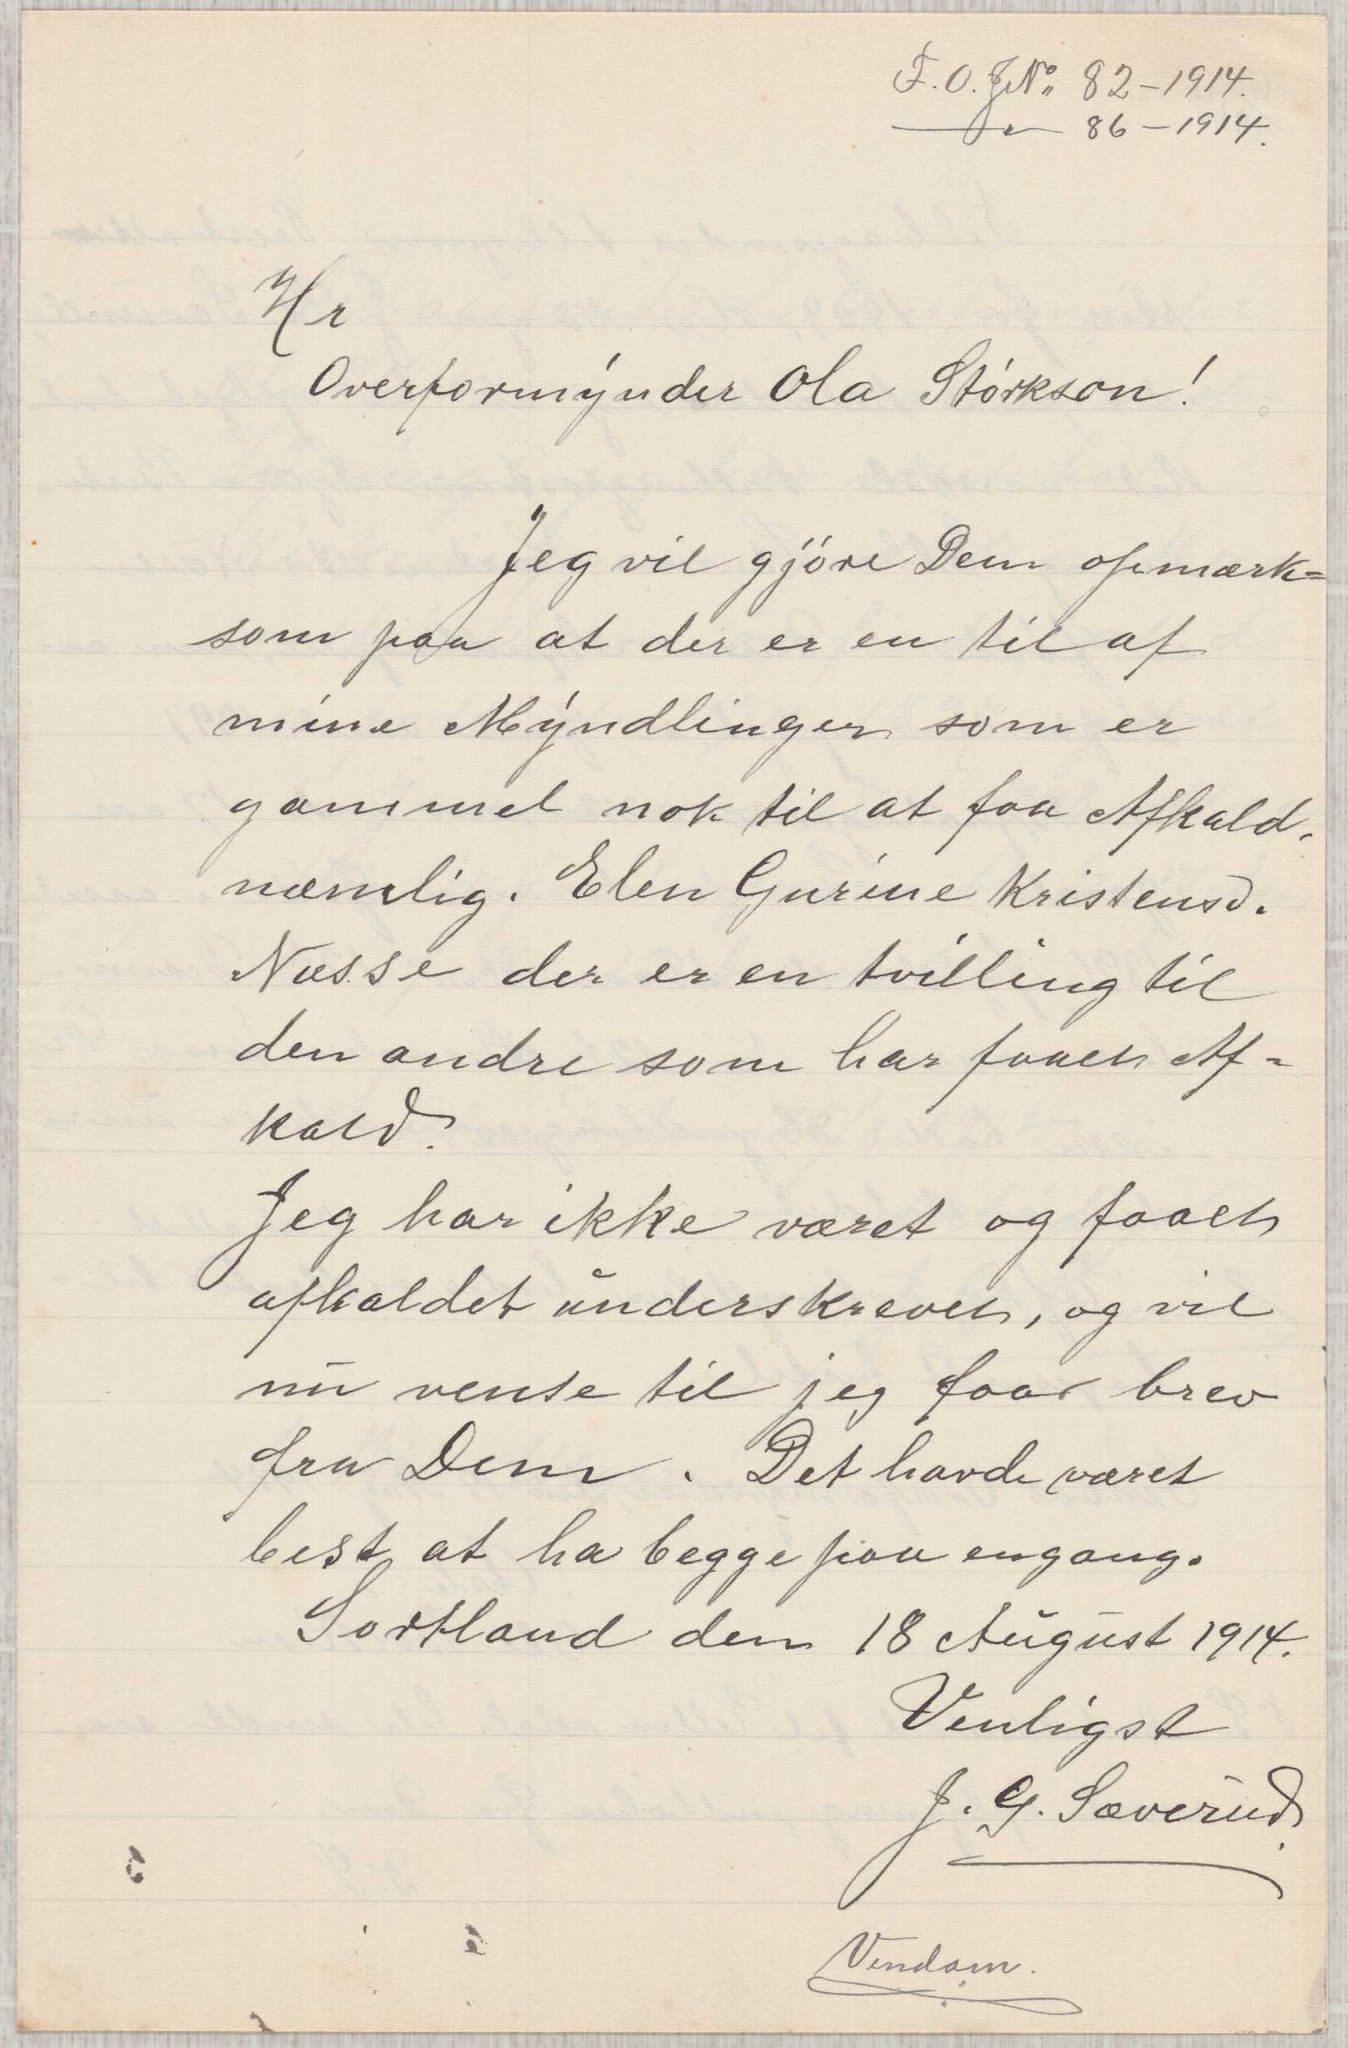 F. O. J No. 82 - 1914.
— " — 86 - 1914.
Hr
Overformynder Ola Störkson!
Jeg vil gjöre Dem opmærk=
som paa at der er en til af
mine Myndlinger som er
gammel nok til at faa Afkald.
næmlig. Elen Gurine Kristensd.
Næsse der er en tvilling til
den andre som har faaet Af=
kald.
Jeg har ikke været og faaet
afkaldet underskrevet, og vil
nu vente til jeg faar brev
fra Dem. Det havde været
best at ha begge paa engang.
Sortland den 18 August 1914.
Venligst
J. G. Sæverud.
Vendom.